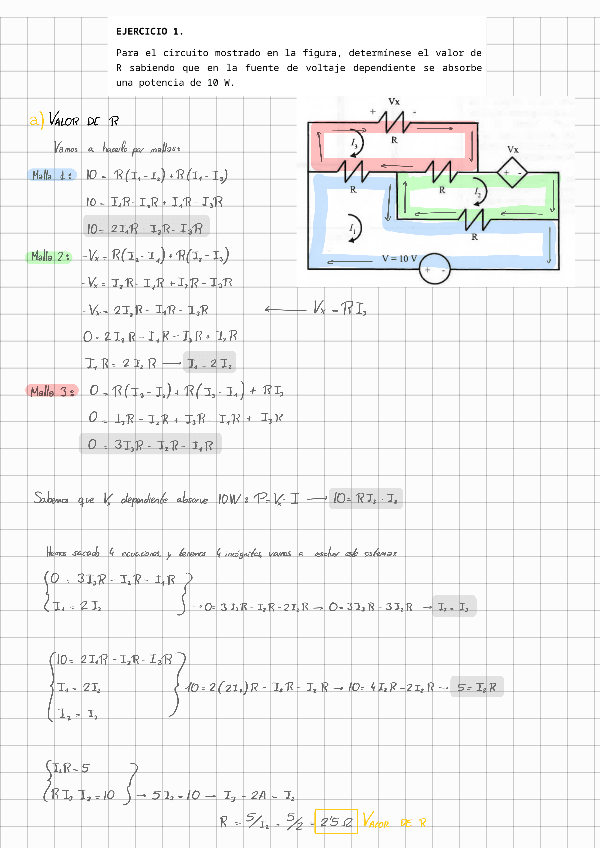 EJERCICIO 1.
Para el circuito mostrado en la figura, determínese el valor de
R sabiendo que en la fuente de voltaje dependiente se absorbe
una potencia de 10 W.
a) VALOR DE R
Vamos a hacerlo por mallas:
Malla 1: 10 = R(I₁-I₂)+R(I₁-I₃)
10 = I₁R-I₂R+I₁R-I₃R
10 = 2I₁R-I₂R-I₃R
Malla 2: -Vx = R(I₂-I₁)+R(I₂-I₃)
-Vx = I₂R-I₁R+I₂R-I₃R
-Vx = 2I₂R-I₁R-I₃R ← Vx = RI₃
0 = 2I₂R-I₁R-I₃R+I₃R
I₁R = 2I₂R → I₁ = 2I₂
Malla 3: 0 = R(I₃-I₂)+R(I₃-I₁)+RI₃
0 = I₃R-I₂R+I₃R-I₁R+I₃R
0 = 3I₃R-I₂R-I₁R
Vx
+ -
R
I₃
R
R
Vx
+ -
I₂
R
I₁
V = 10 V
+ -
Sabemos que Vx dependiente absorve 10W: P=Vx·I → 10 = RI₃·I₂
Hemos sacado 4 ecuaciones, y tenemos 4 incógnitas, vamos a resolver este sistema
0 = 3I₃R-I₂R-I₁R
I₁ = 2I₂ → 0 = 3I₃R-I₂R-2I₂R → 0 = 3I₃R-3I₂R → I₂ = I₃
10 = 2I₁R-I₂R-I₃R
I₁ = 2I₂ 10 = 2(2I₂)R-I₂R-I₂R → 10 = 4I₂R-2I₂R → 5 = I₂R
I₂ = I₃
I₂R = 5
RI₃I₂ = 10 → 5I₃ = 10 → I₃ = 2A = I₂
R = 5/I₂ = 5/2 = 2'5 Ω VALOR DE R